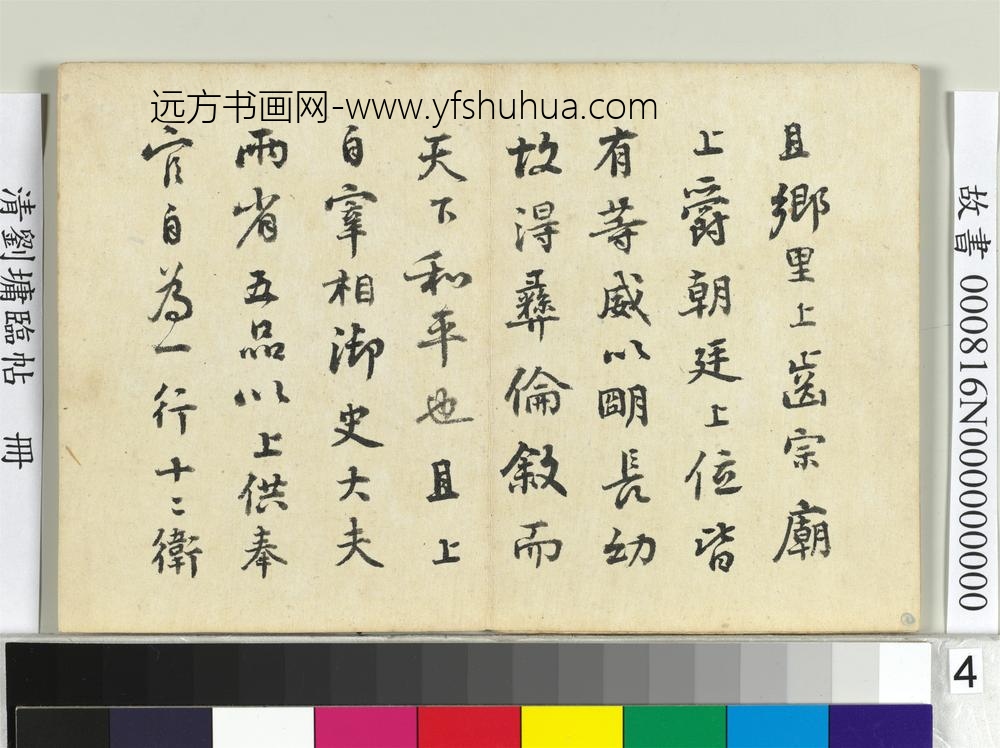 远方书画网-www.yfshuhua.com
且鄉里上齒宗廟
上爵朝廷上位皆
有等威以明長幼
故得彝倫敘而
天下和平也且上
自宰相御史大夫
兩省五品以上供奉
官自為一行十二衛
清劉墉臨帖 冊
故書 000816N000000000
4